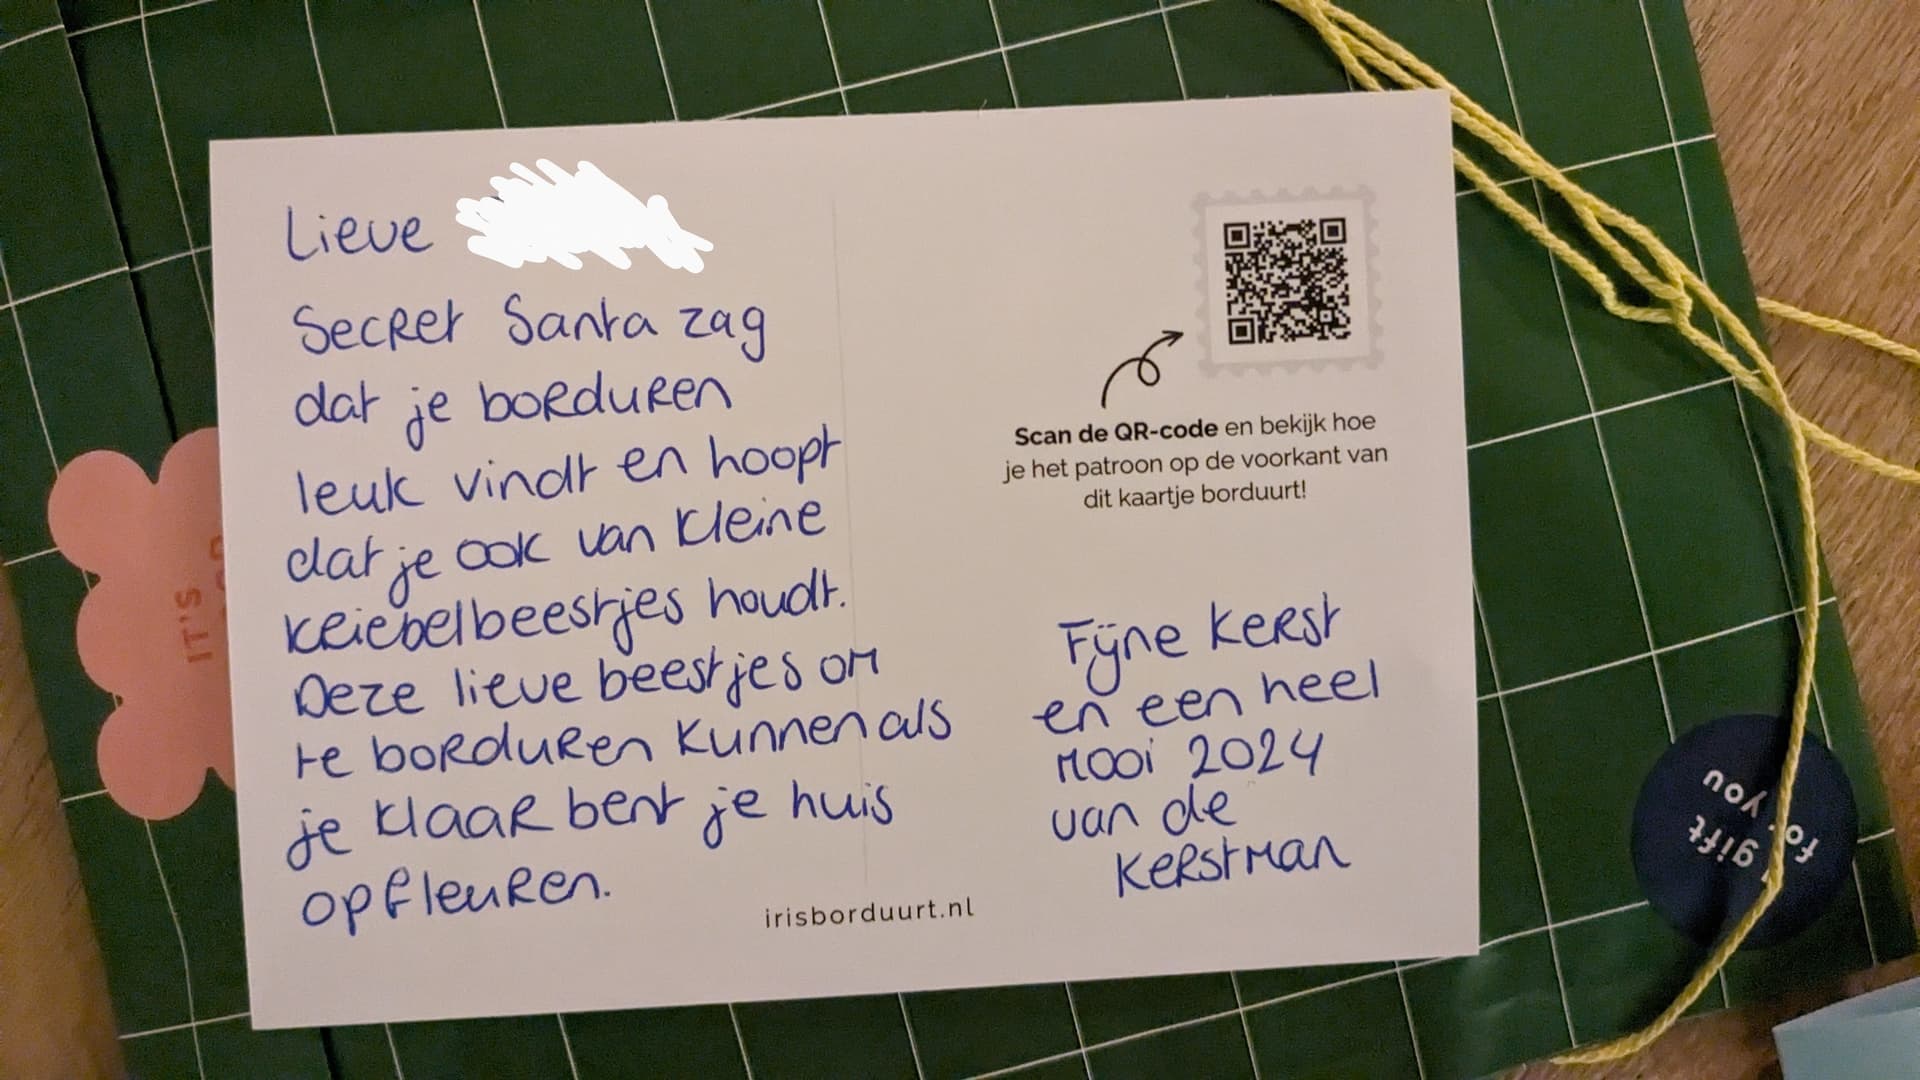 Lieve
Secret Santa zag
dat je borduren
leuk vindt en hoopt
dat je ook van kleine
kriebelbeestjes houdt.
Deze lieve beestjes om
te borduren kunnen als
je klaar bent je huis
opfleuren.
Scan de QR-code en bekijk hoe
je het patroon op de voorkant van
dit kaartje borduurt!
Fijne kerst
en een heel
mooi 2024
van de
kerstman
irisborduurt.nl
IT'S
gift
for you